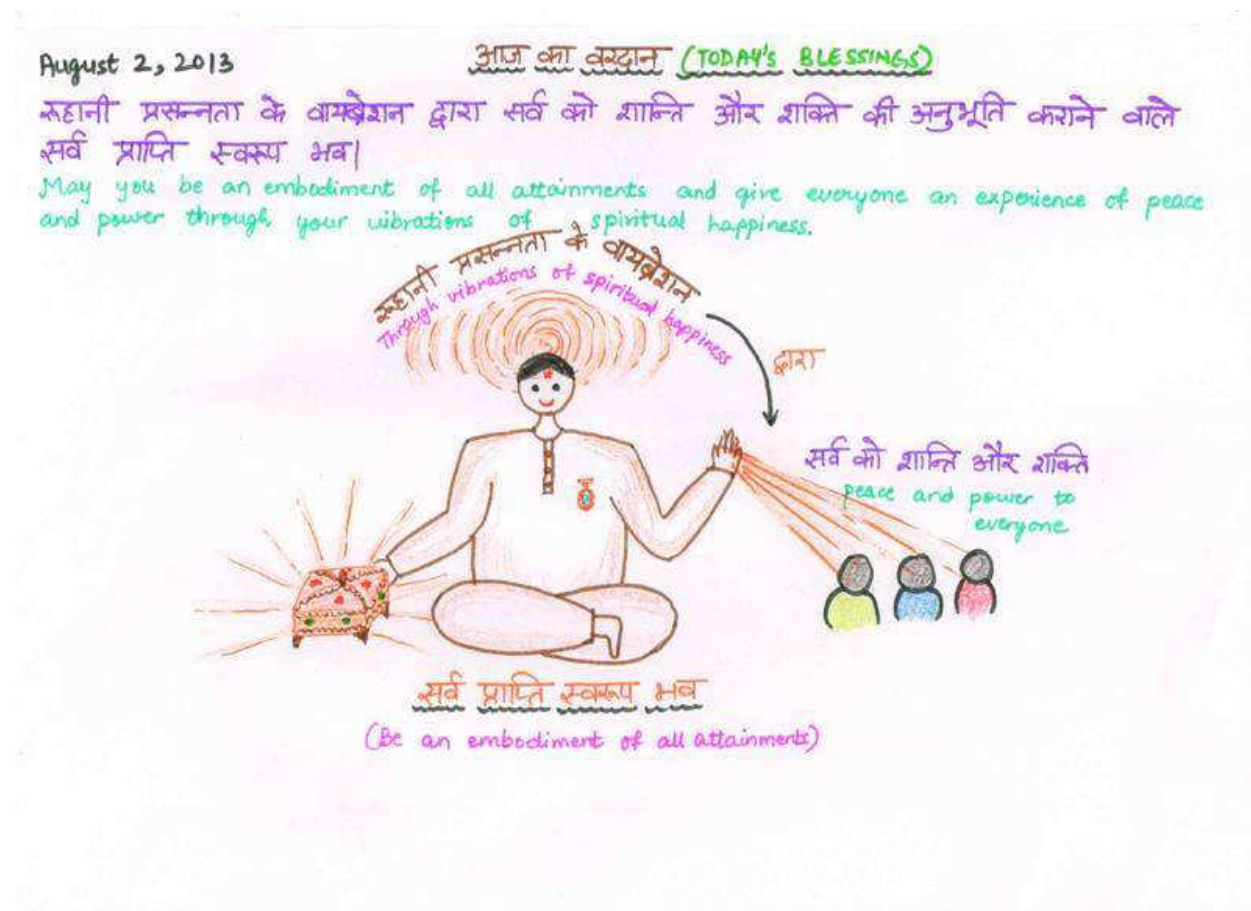 August 2, 2013
आज का वरदान (TODAY'S BLESSINGS)
रूहानी प्रसन्नता के वायब्रेशन द्वारा सर्व को शान्ति और शक्ति की अनुभूति कराने वाले
सर्व प्राप्ति स्वरूप भव।
May you be an embodiment of all attainments and give everyone an experience of peace
and power through your vibrations of spiritual happiness.
रूहानी प्रसन्नता के वायब्रेशन
Through vibrations of spiritual happiness
द्वारा
सर्व को शान्ति और शक्ति
peace and power to
everyone
सर्व प्राप्ति स्वरूप भव
(Be an embodiment of all attainments)